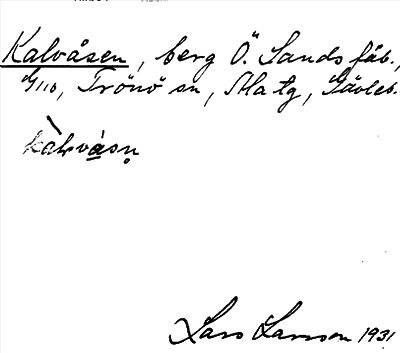 Kalvåsen, berg Ö. Sands fäb.,
4/110, Trönö sn, Ala tg, Gävleb.
kàlvåsn̥
Lars Larsson 1931